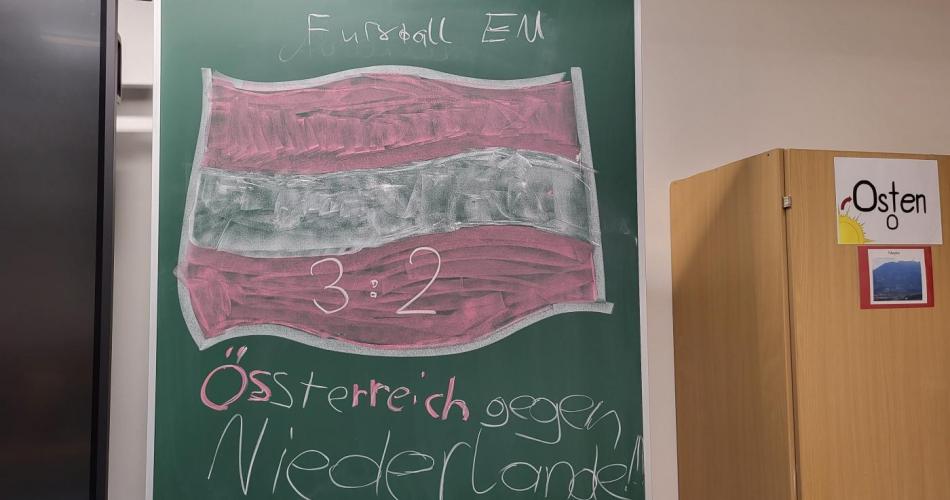 Fussball EM
3:2
Össterreich gegen
Niederlande!!
Osten
O